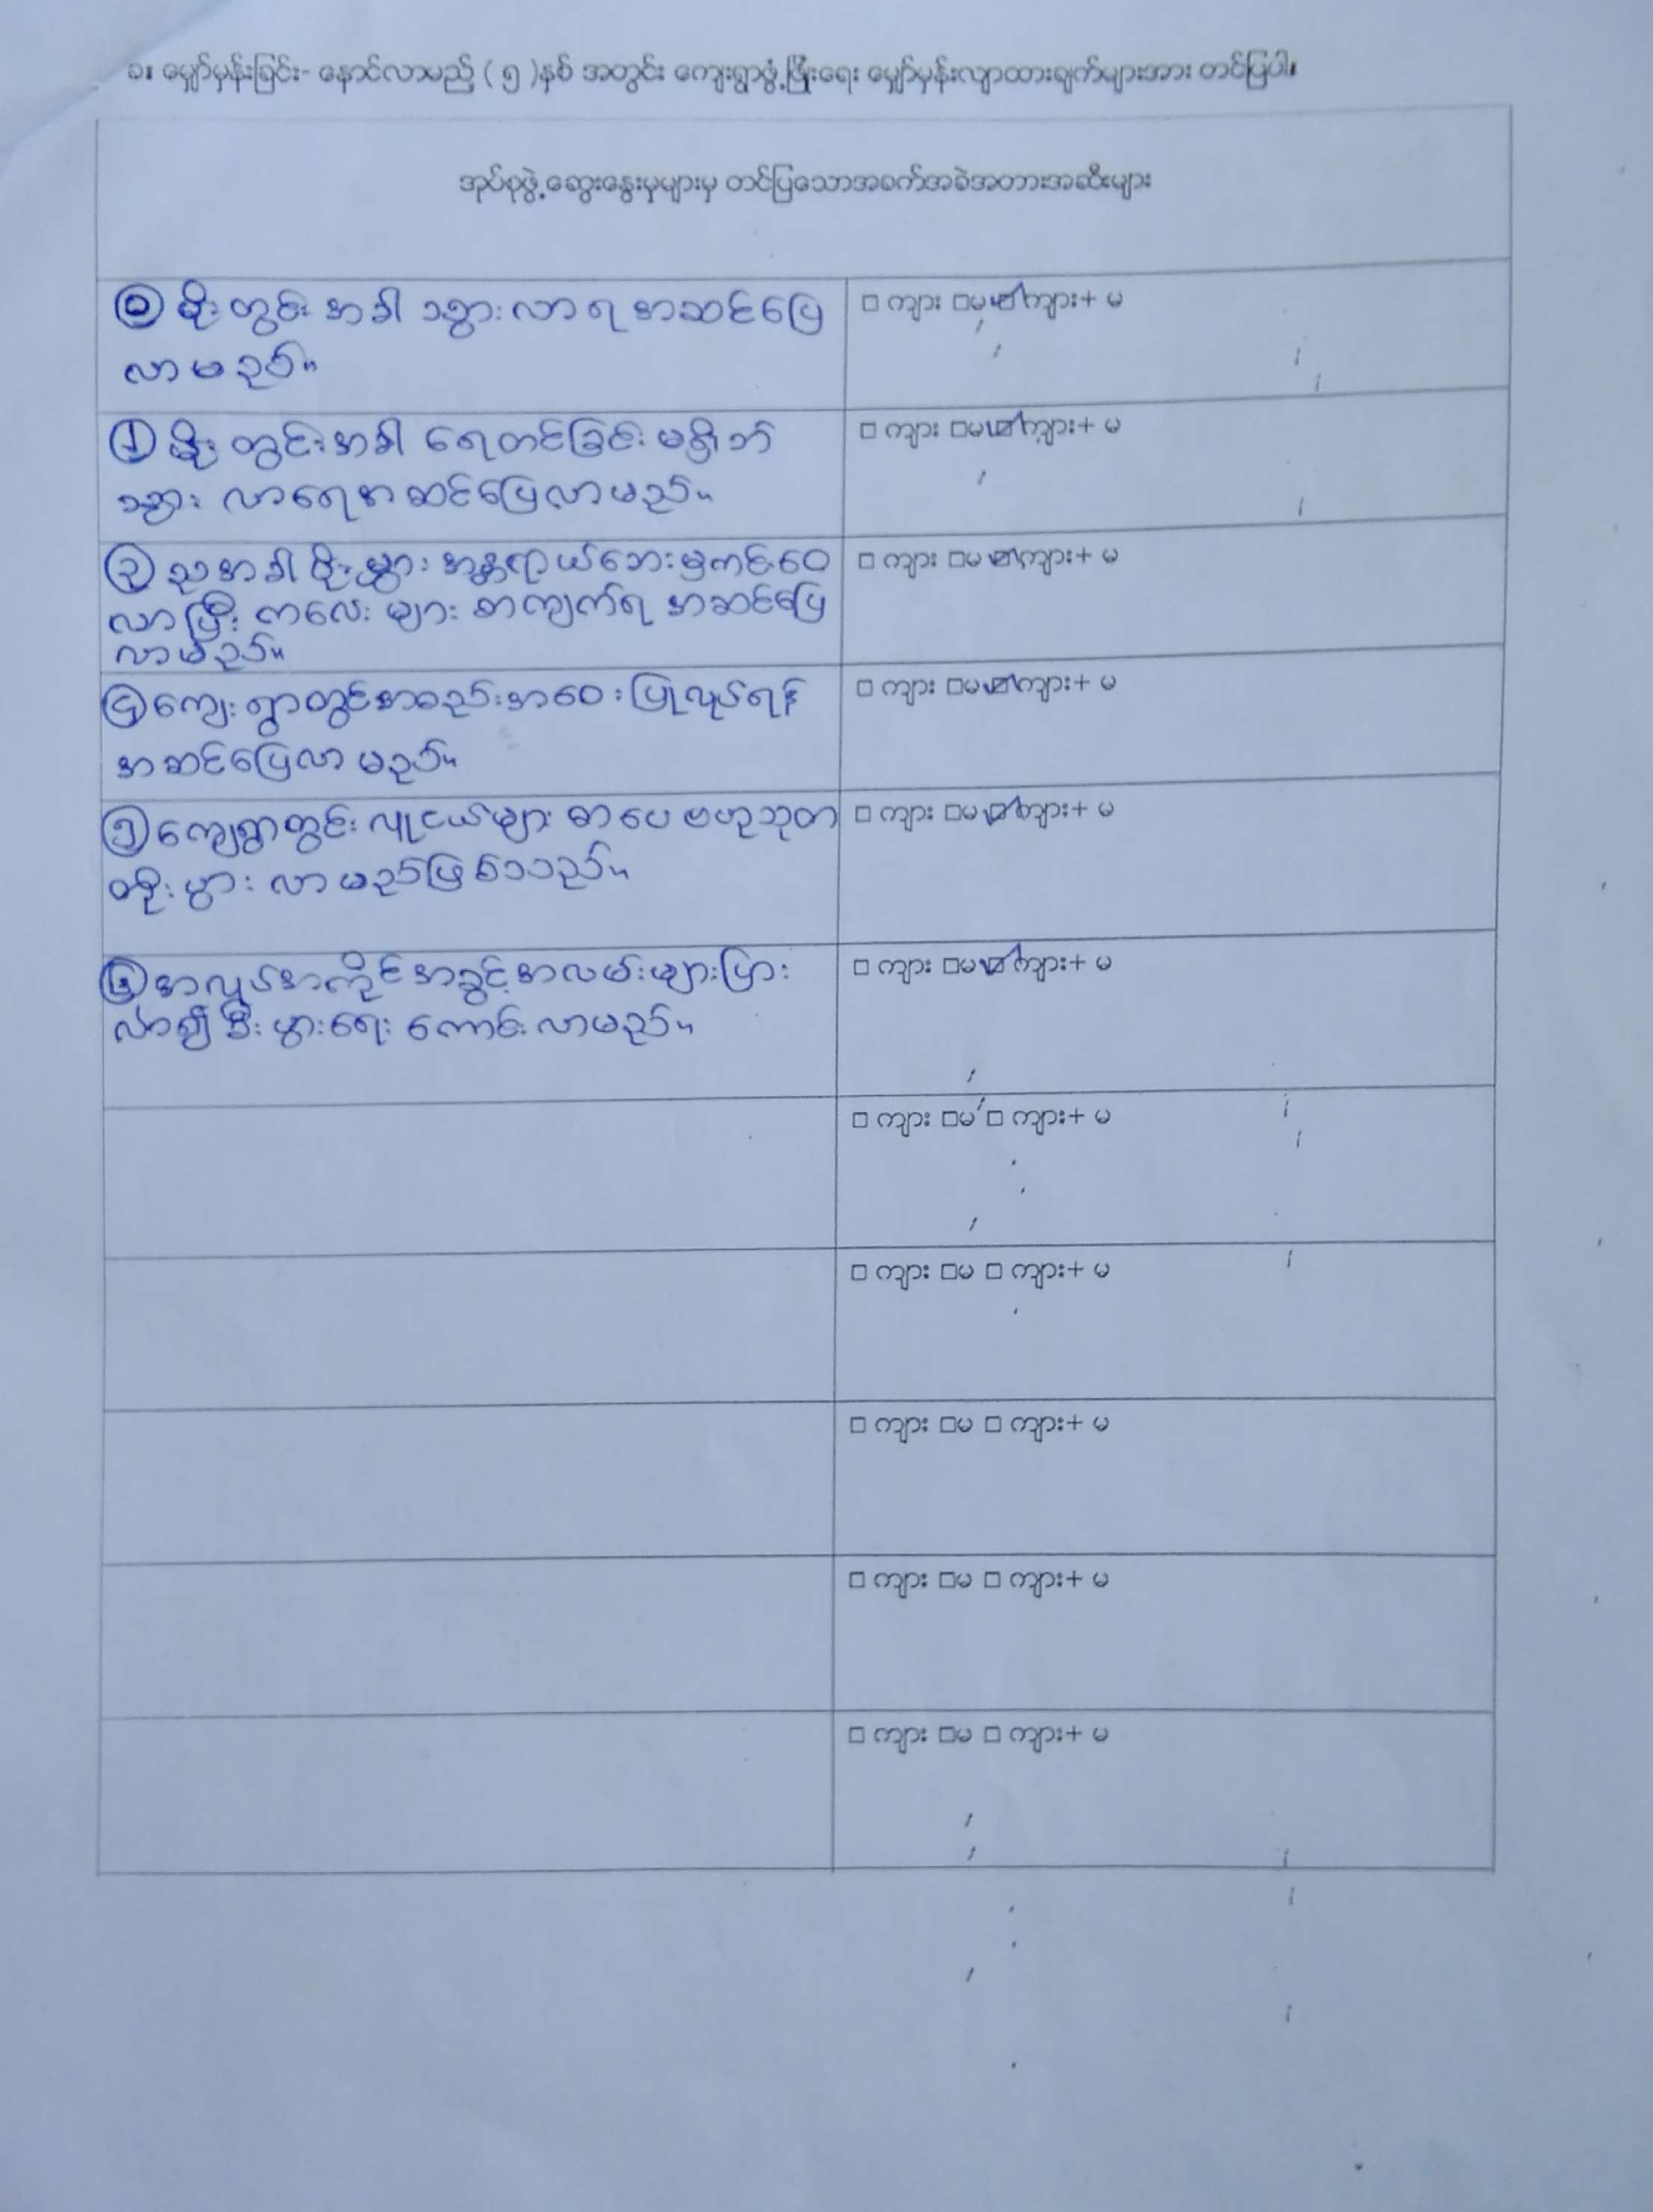 ခ။ မျှော်မှန်းခြင်း- နောင်လာမည့် ( ၅ )နှစ် အတွင်း ကျေးရွာဖွံ့ဖြိုးရေး မျှော်မှန်းလျာထားချက်များအား တင်ပြပါ။
အုပ်စုဖွဲ့ဆွေးနွေးမှုများမှ တင်ပြသောအခက်အခဲအတားအဆီးများ
၁ မိုးတွင်းအခါ သွားလာရအဆင်ပြေ
လာမည်။
□ ကျား □မ ☑ ကျား+ မ
၂ မိုးတွင်းအခါ ရေတင်ခြင်းမရှိဘဲ
သွားလာရေးအဆင်ပြေလာမည်။
□ ကျား □မ ☑ ကျား+ မ
၃ ညအခါ မီးများ အန္တရာယ်ဘေးမှကင်းဝေး
လာပြီး ကလေးများ စာကျက်ရ အဆင်ပြေ
လာမည်။
□ ကျား □မ ☑ ကျား+ မ
၄ ကျေးရွာတွင်အစည်းအဝေးပြုလုပ်ရန်
အဆင်ပြေလာမည်။
□ ကျား □မ ☑ ကျား+ မ
၅ ကျေးရွာတွင်း လူငယ်များ စာပေ ဗဟုသုတ
တိုးပွားလာမည်ဖြစ်သည်။
□ ကျား □မ ☑ ကျား+ မ
၆ အလုပ်အကိုင်အခွင့်အလမ်းများပြား
လာ၍ စီးပွားရေး ကောင်းလာမည်။
□ ကျား □မ ☑ ကျား+ မ
□ ကျား □မ □ ကျား+ မ
□ ကျား □မ □ ကျား+ မ
□ ကျား □မ □ ကျား+ မ
□ ကျား □မ □ ကျား+ မ
□ ကျား □မ □ ကျား+ မ